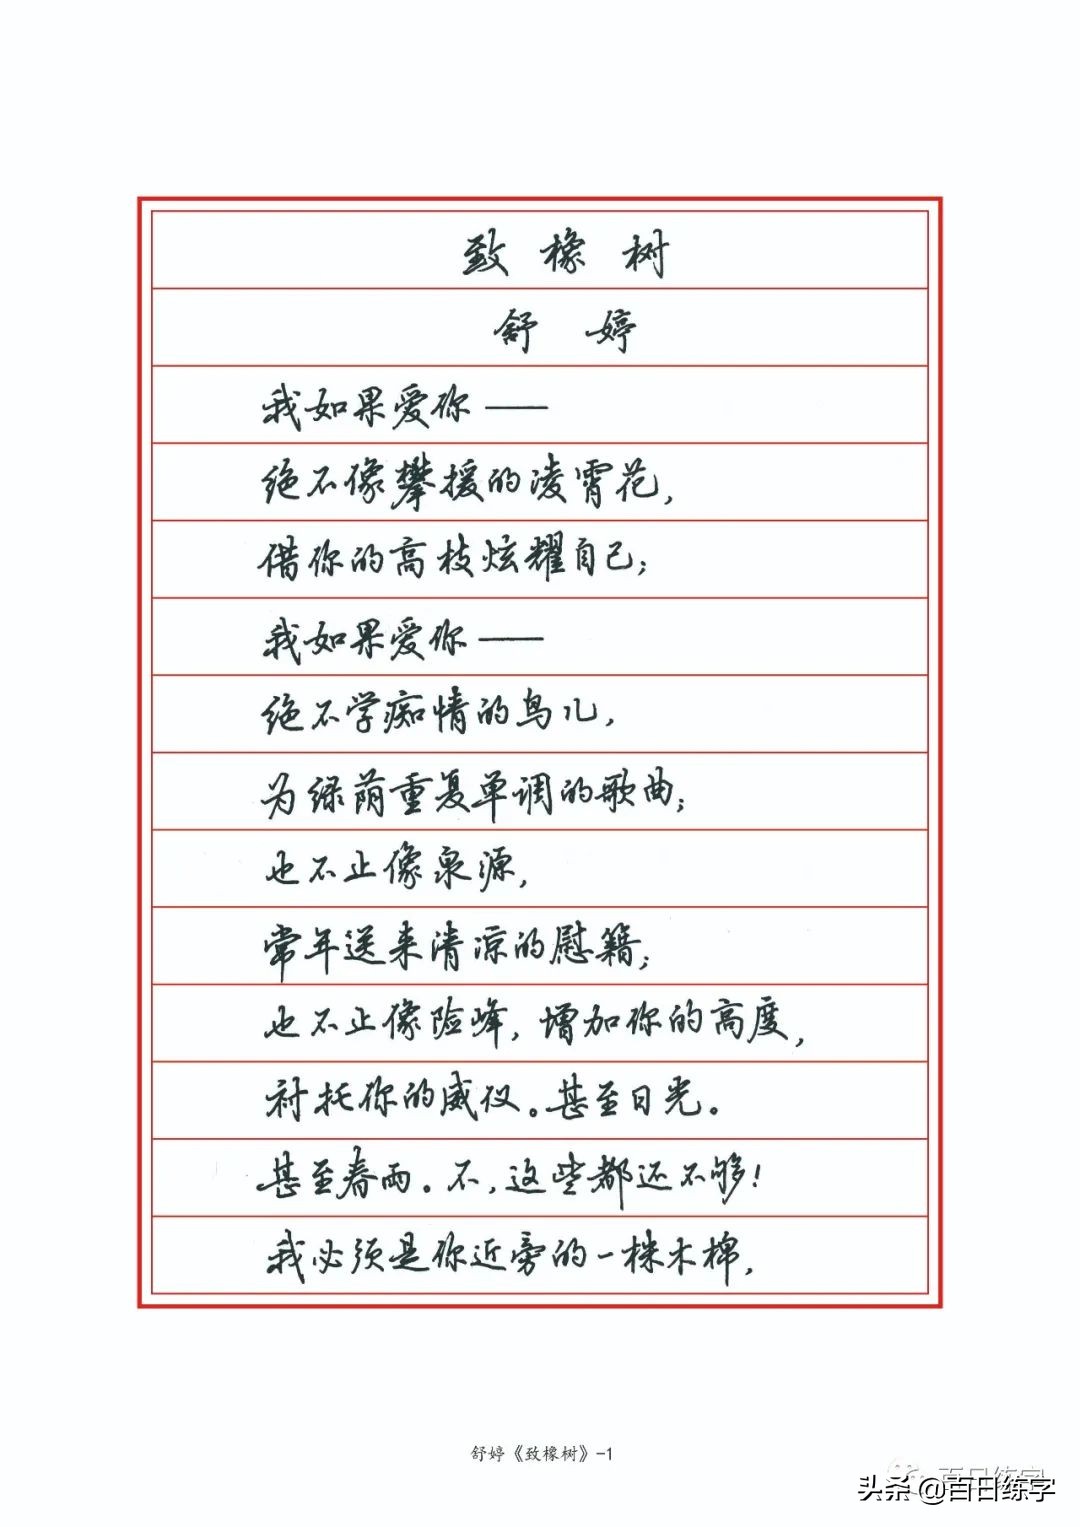 致橡树
舒婷
我如果爱你——
绝不像攀援的凌霄花，
借你的高枝炫耀自己；
我如果爱你——
绝不学痴情的鸟儿，
为绿荫重复单调的歌曲；
也不止像泉源，
常年送来清凉的慰籍；
也不止像险峰，增加你的高度，
衬托你的威仪。甚至日光。
甚至春雨。不，这些都还不够！
我必须是你近旁的一株木棉，
舒婷《致橡树》-1
百日练字
头条 @百日练字